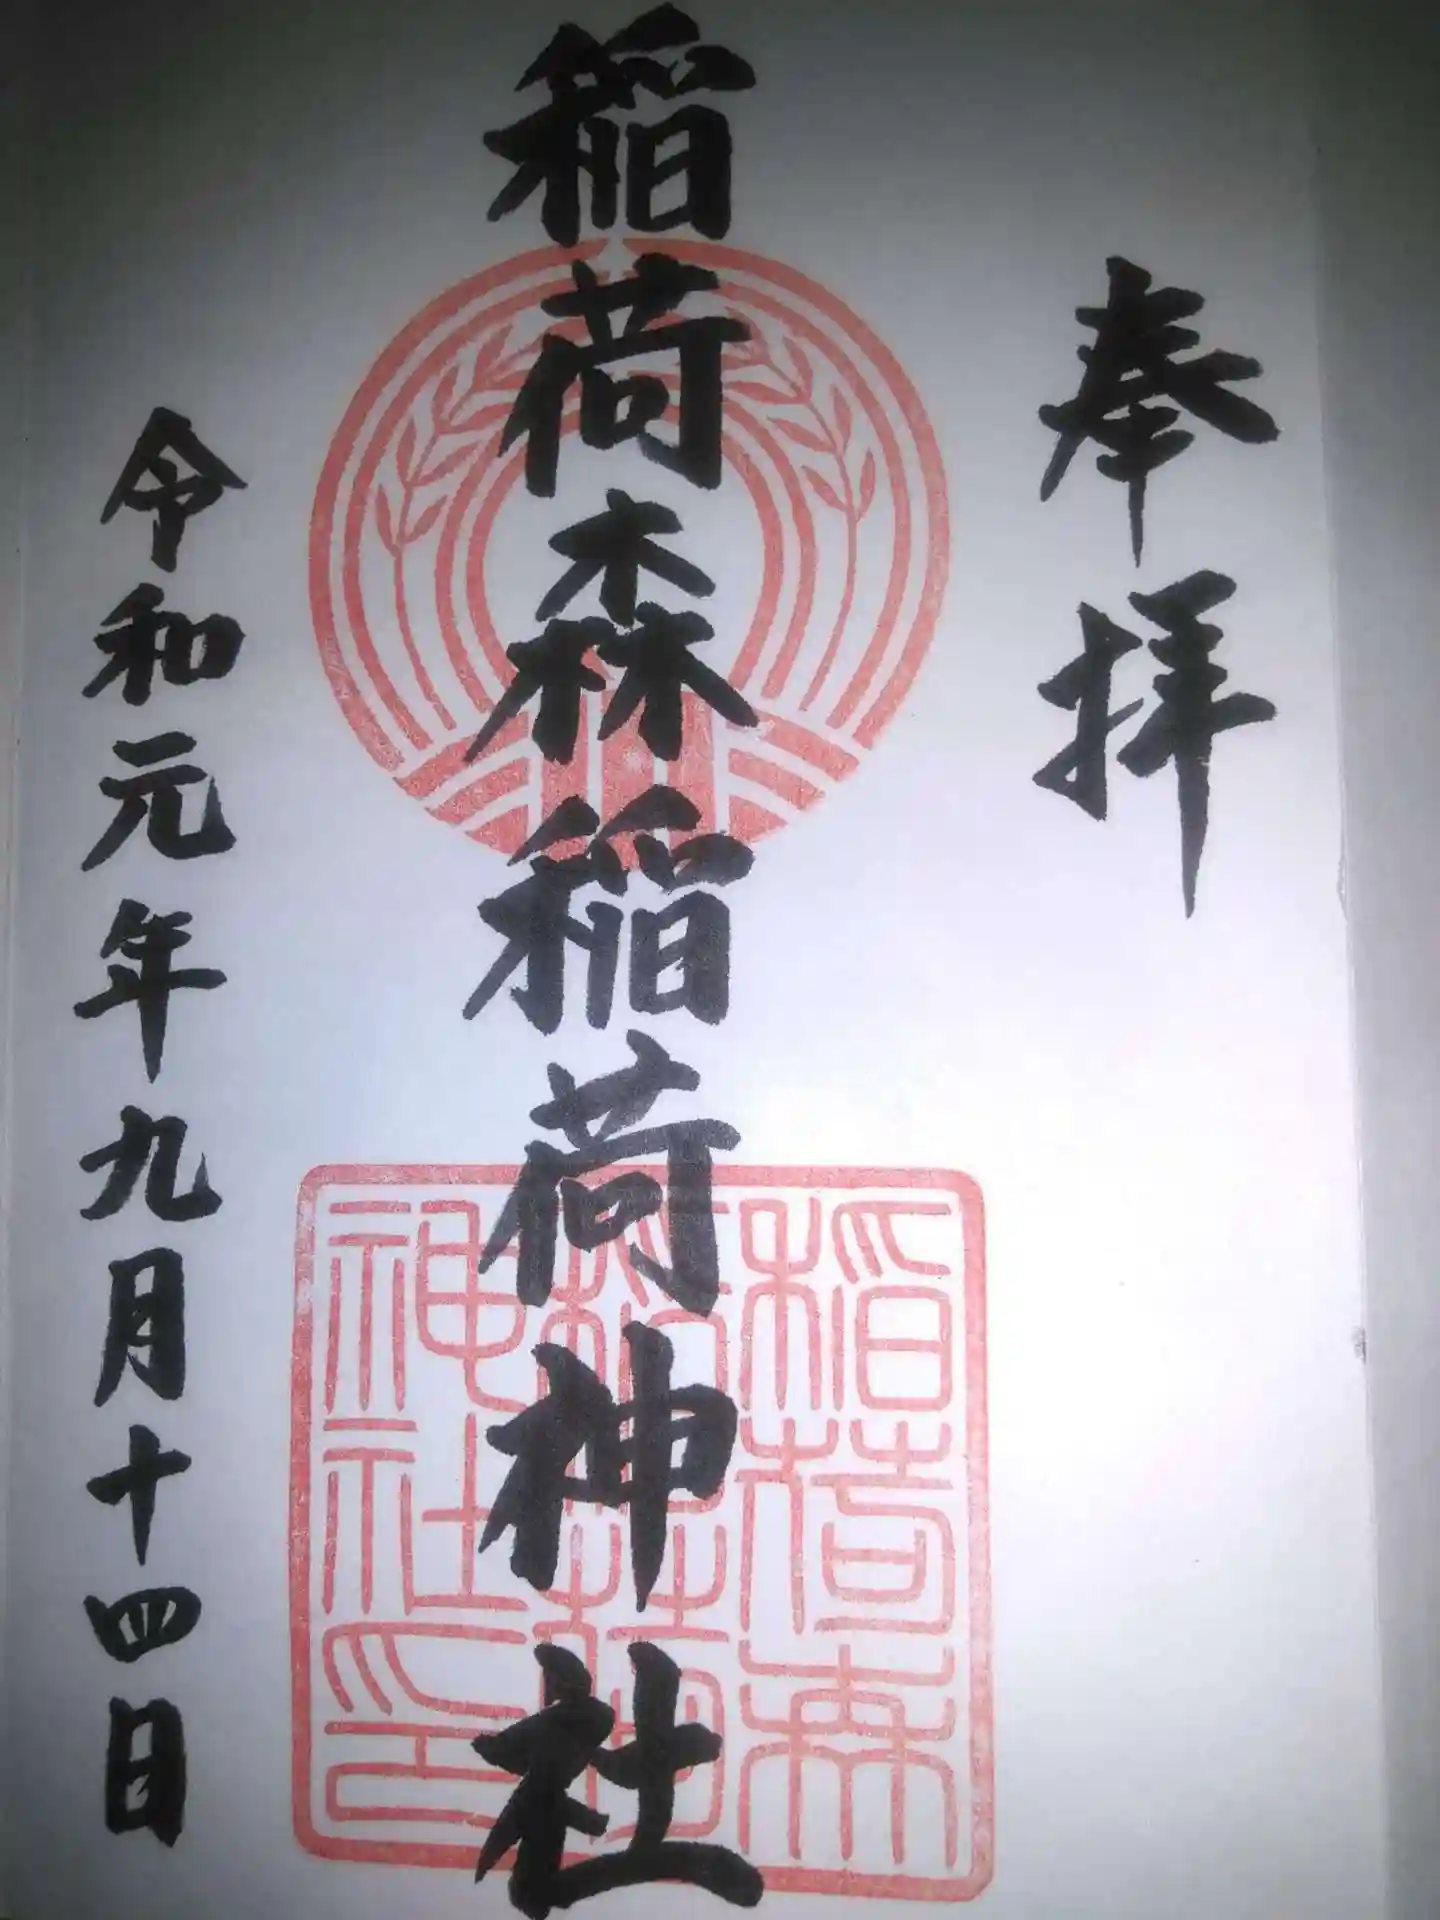 奉拝
稲荷森稲荷神社
令和元年九月十四日
稲荷森
稲荷神
社印